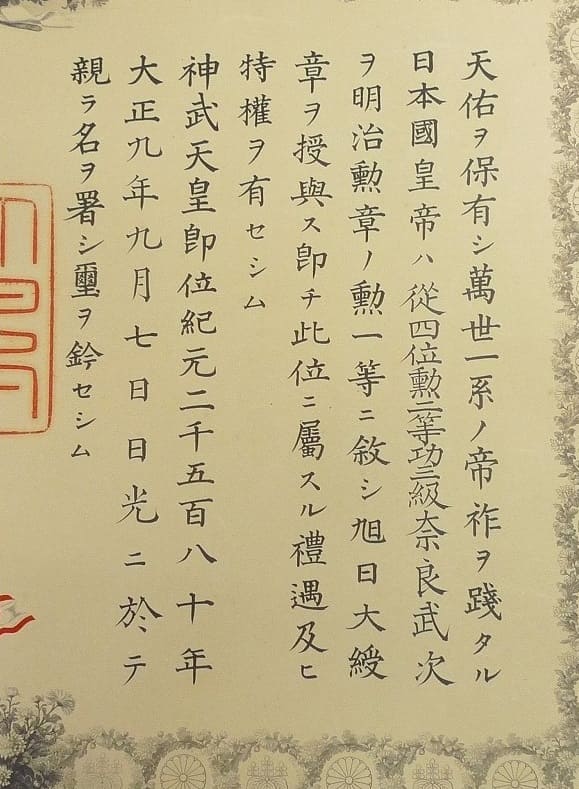 天佑ヲ保有シ萬世一系ノ帝祚ヲ踐タル
日本國皇帝ハ從四位勲二等功三級奈良武次
ヲ明治勲章ノ勲一等ニ敘シ旭日大綬
章ヲ授與ス卽チ此位ニ屬スル禮遇及ヒ
特權ヲ有セシム
神武天皇卽位紀元二千五百八十年
大正九年九月七日日光ニ於テ
親ラ名ヲ署シ璽ヲ鈐セシム